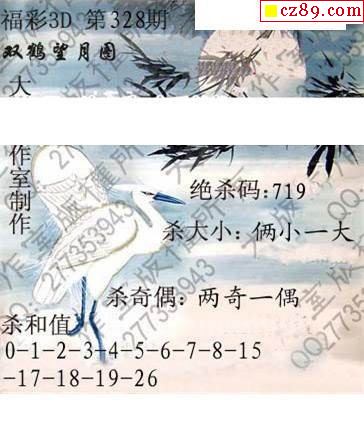 cz89.com
福彩3D 第328期
双鹤望月图
大
作室制作
绝杀码:719
杀大小: 俩小一大
杀奇偶: 两奇一偶
杀和值
0-1-2-3-4-5-6-7-8-15
-17-18-19-26
大作室版權所
QQ277353943